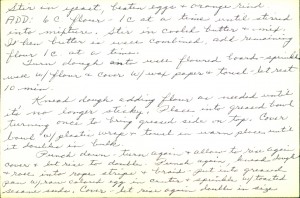 Stir in yeast, beaten eggs & orange rind
ADD: 6 C flour - 1C at a time until stirred
into mixture. Stir in cooled butter & mix.
When butter is well combined, add remaining
flour 1C at a time.
Turn dough onto well floured board - sprinkle
w/ flour & cover w/ wax paper & towel - let rest
10 min.
Knead dough adding flour as needed until
it's no longer sticky. Place into greased bowl
turning once to bring greased side on top. Cover
bowl w/ plastic wrap & towel in warm place until
it doubles in bulk.
Punch down - turn again & allow to rise again
cover & let rise to double. Punch again, knead dough
& roll into rope strips & braid - put into greased
pan w/ raw colored egg in center & sprinkle w/ toasted
sesame seeds. Cover - let rise again double in size